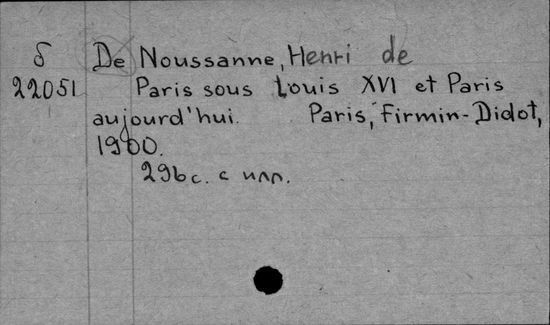 δ De Noussanne, Henri de
22051 Paris sous Louis XVI et Paris
aujourd'hui. Paris, Firmin-Didot,
1900.
296 c. с илл.